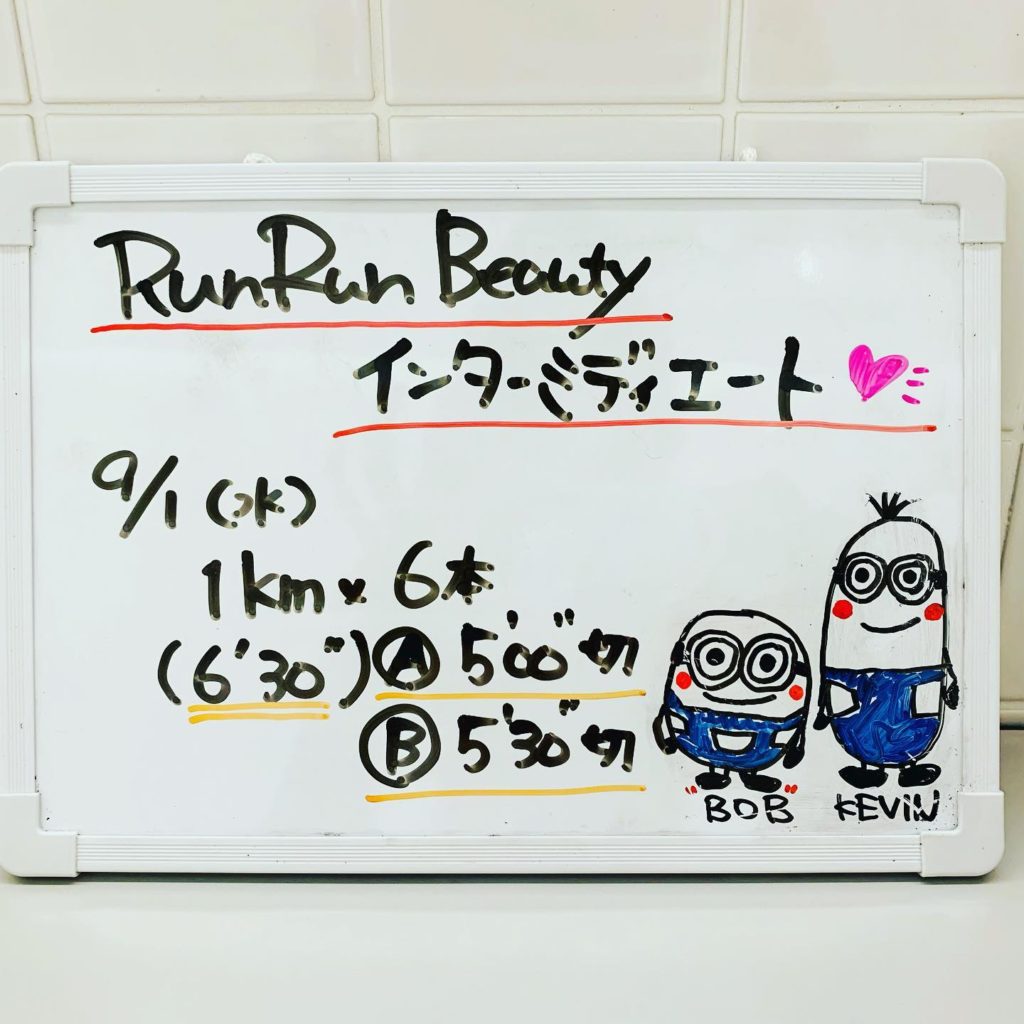 RunRun Beauty
インターミディエート
9/1 (水)
1km × 6本
(6'30") Ⓐ 5'00"切
Ⓑ 5'30"切
"BOB" KEVIN